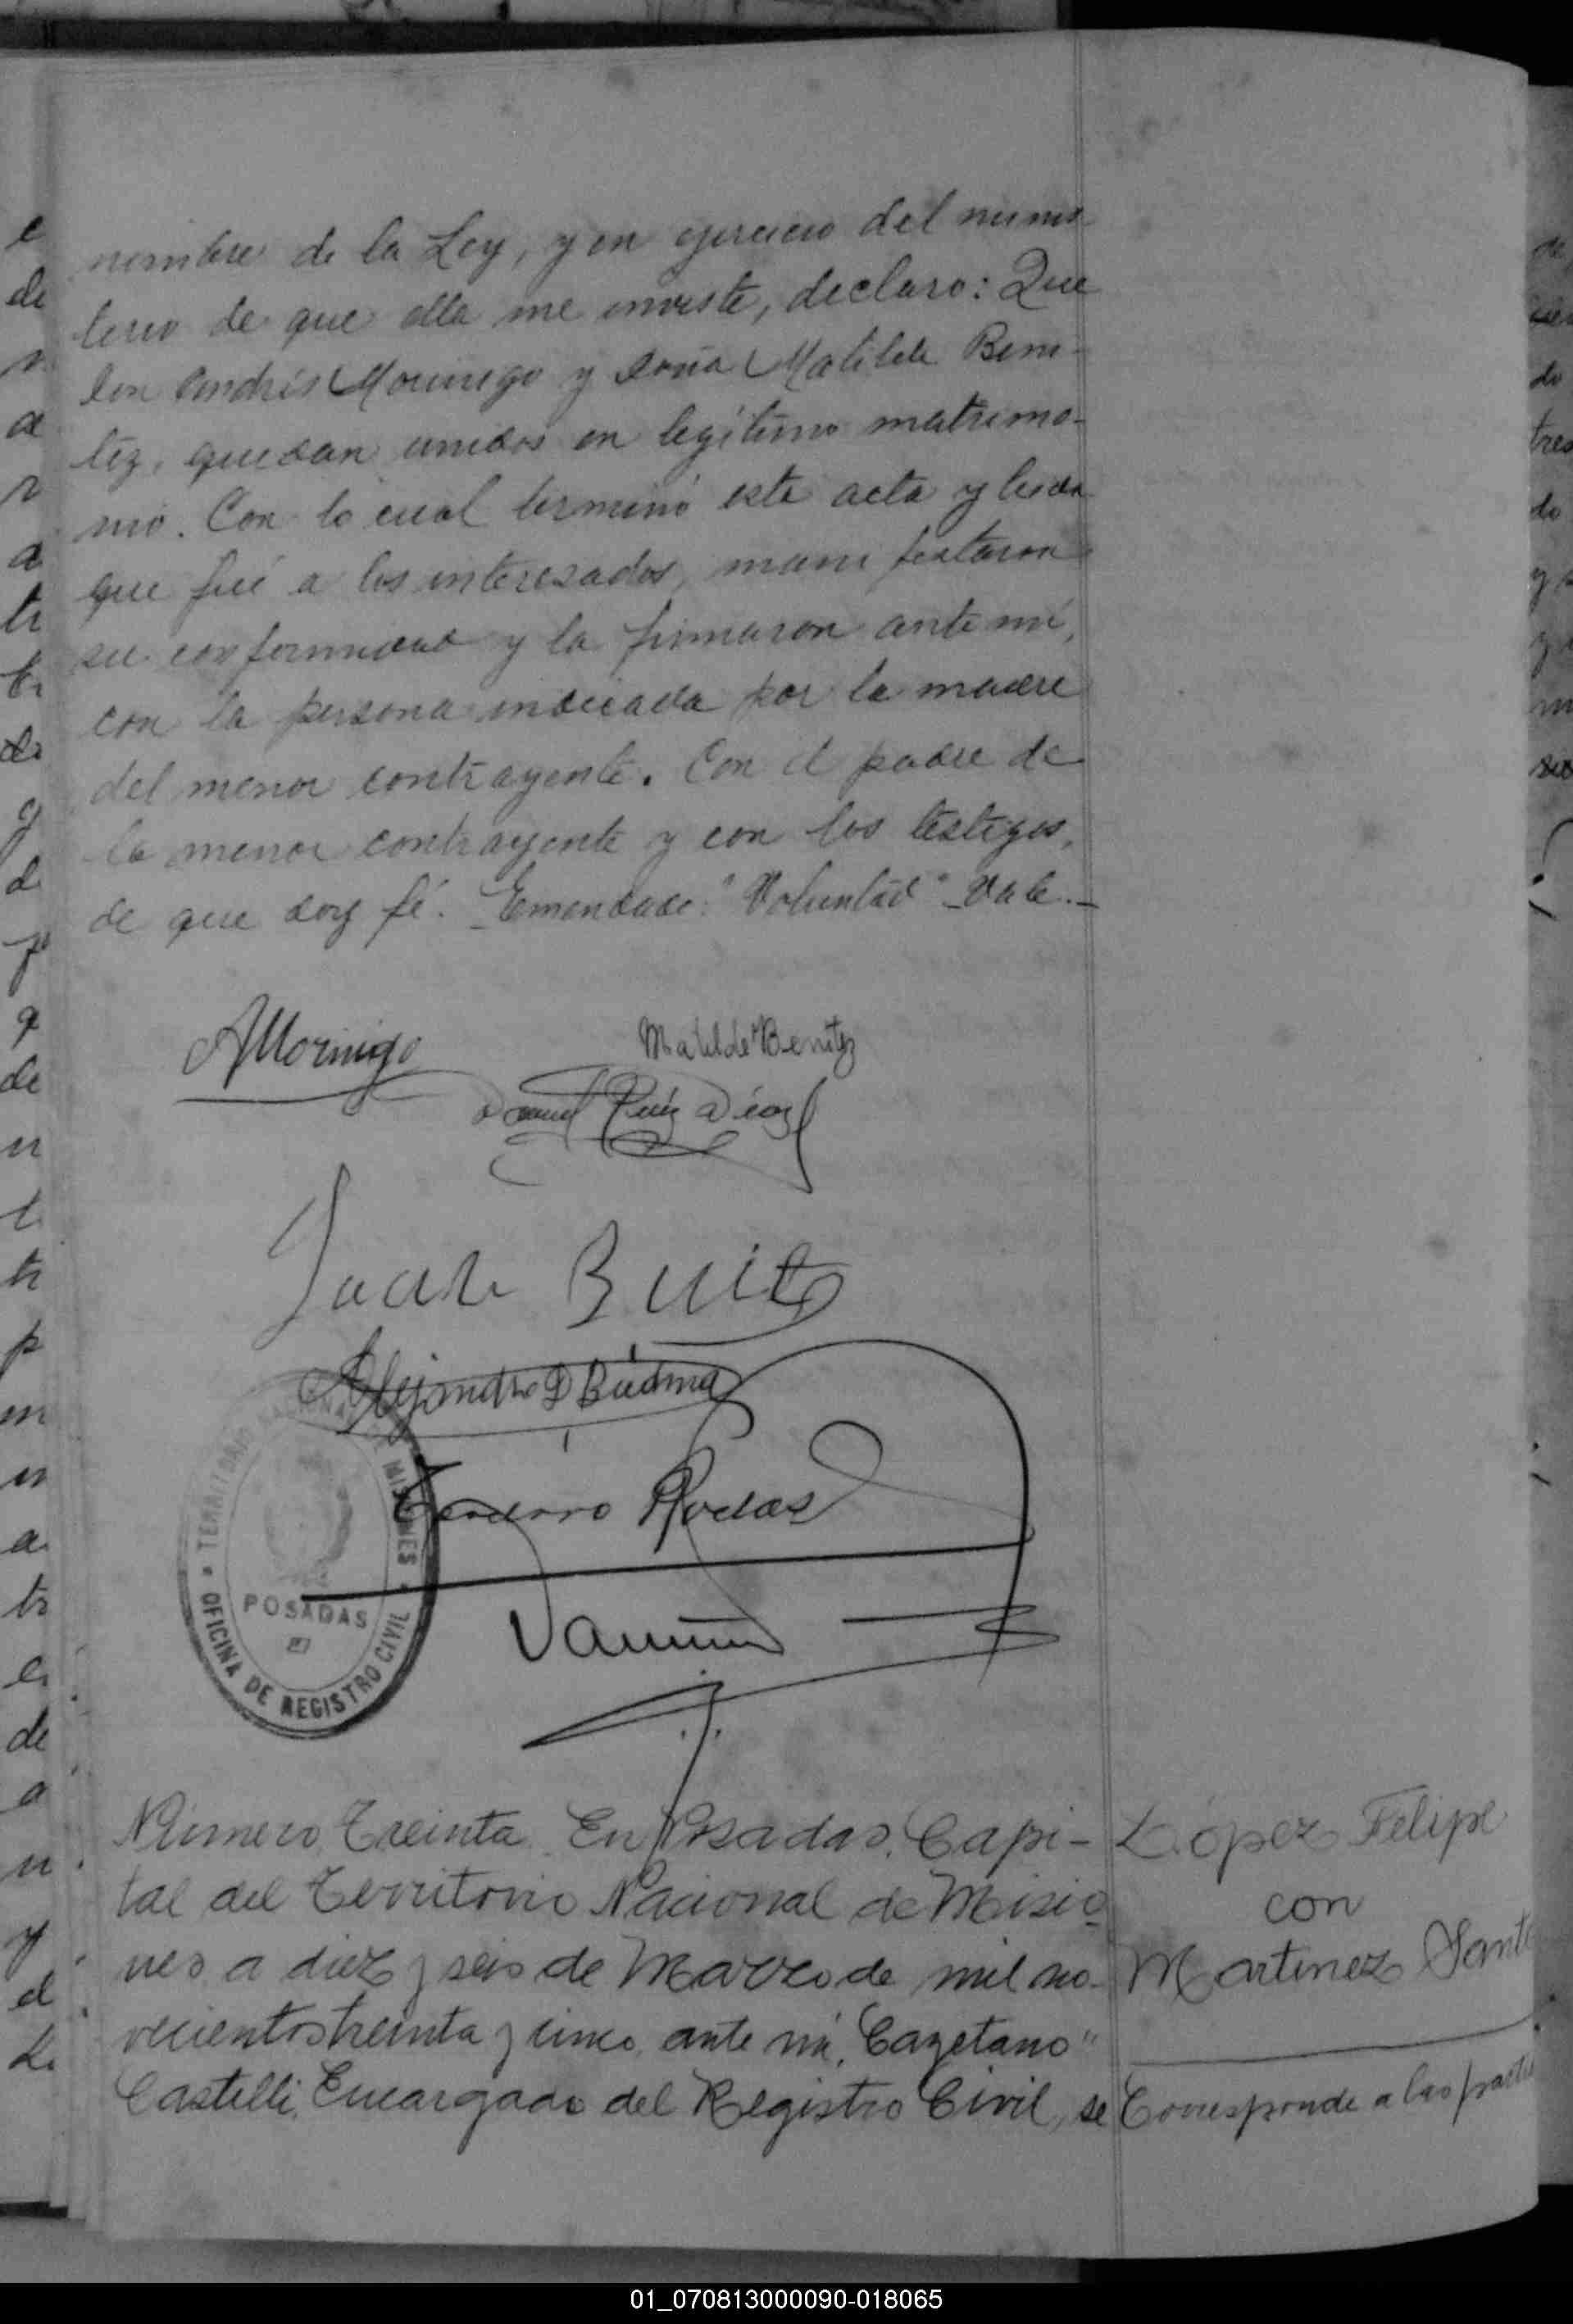 nombre de la Ley, y en ejercicio del minis
terio de que ella me inviste, declaro: Que
don Andrés Morinigo y doña Matilde Beni-
tez, quedan unidos en legítimo matrimo-
nio. Con lo cual terminó este acta y leida
que fué a los interesados, manifestaron
su conformidad y la firmaron ante mí,
con la persona indicada por la madre
del menor contrayente. Con el padre de
la menor contrayente y con los testigos,
de que doy fé. Emendado: "Voluntad" - Vale.-
AMorinigo
Matilde Benitez
Daniel Ruiz Diaz
Juan
Alejandro D
Rodas
TERRITORIO NACIONAL DE MISIONES
POSADAS
OFICINA DE REGISTRO CIVIL
Número Treinta. En Posadas, Capi-
tal del Territorio Nacional de Misio
nes a diez y seis de Marzo de mil no-
vecientos treinta y cinco, ante mí, Cayetano
Castelli, Encargado del Registro Civil, se
López Felipe
con
Martinez
Corresponde a las
01_070813000090-018065